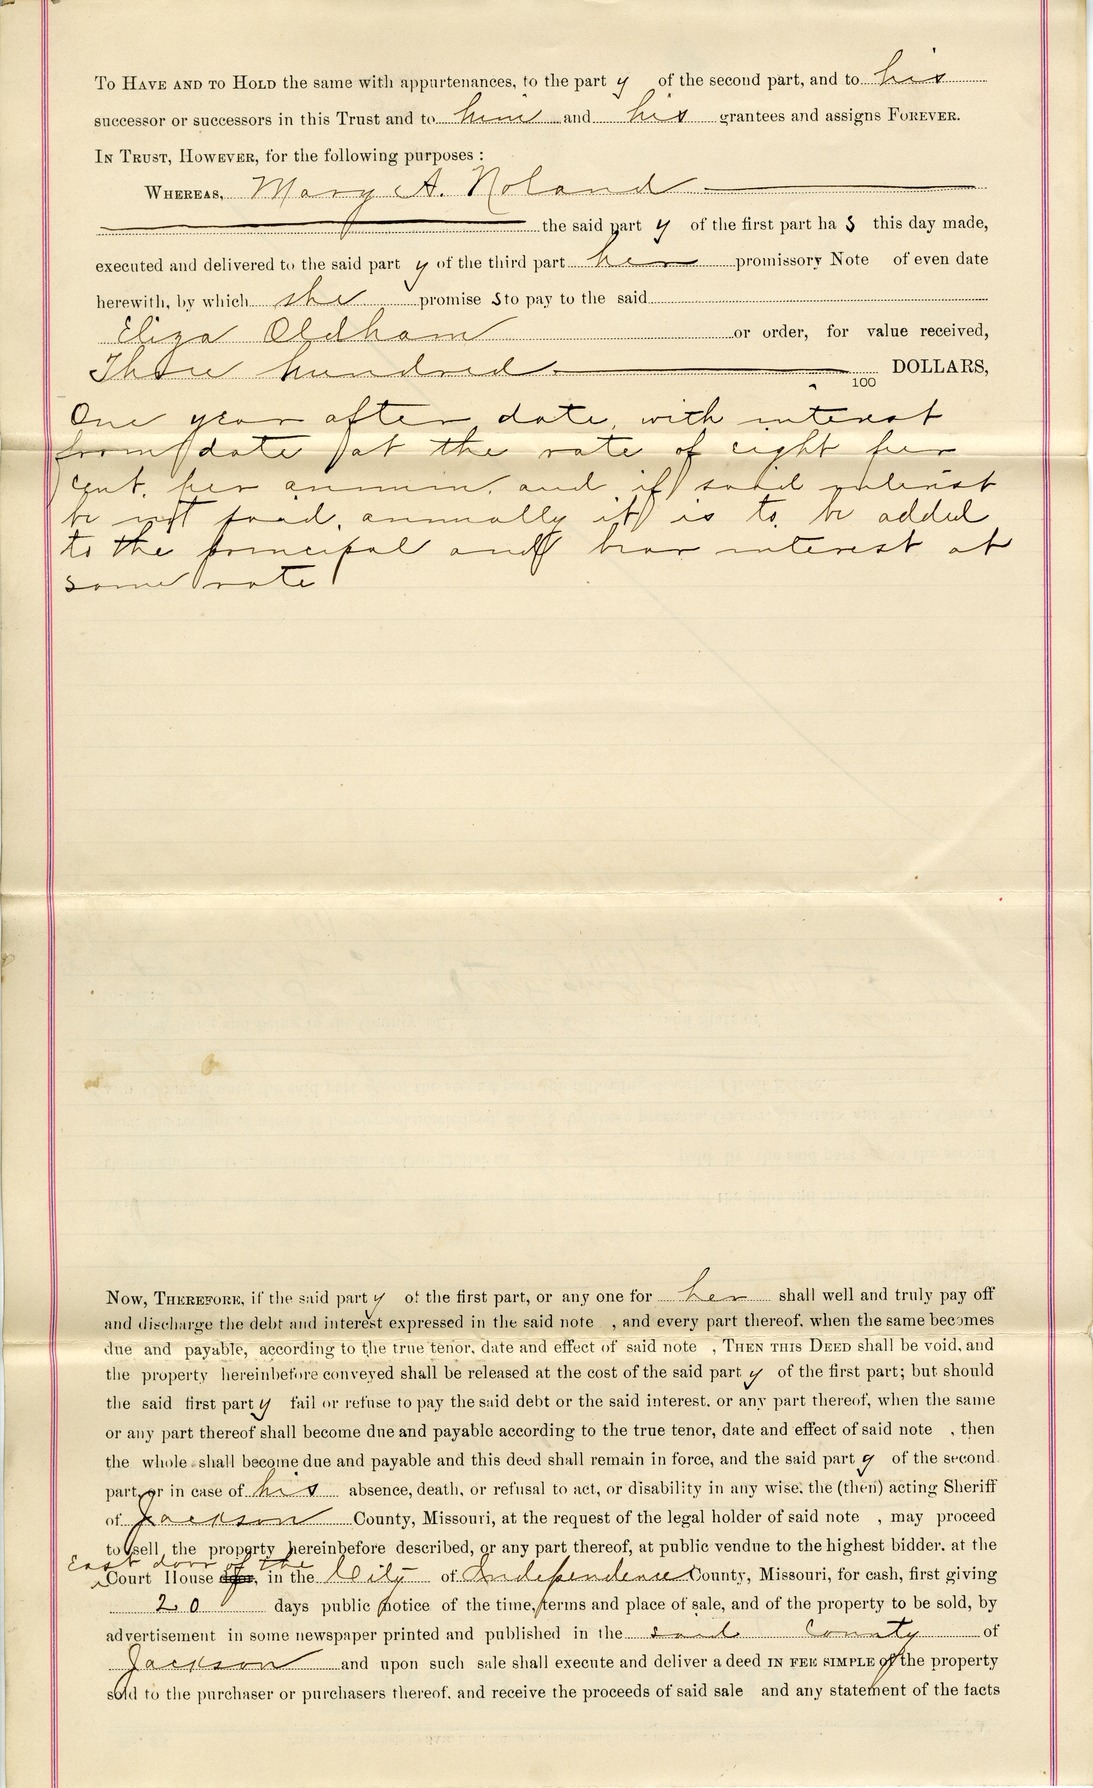 To Have and to Hold the same with appurtenances, to the part y of the second part, and to his
successor or successors in this Trust and to him and his grantees and assigns Forever.
In Trust, However, for the following purposes :
Whereas, Mary A. Noland
the said part y of the first part ha s this day made,
executed and delivered to the said part y of the third part her promissory Note of even date
herewith, by which she promise s to pay to the said
Eliza Oldham or order, for value received,
Three hundred 100 DOLLARS,
One year after date, with interest
from date at the rate of eight per
cent. per annum, and if said interest
be not paid, annually it is to be added
to the principal and bear interest at
same rate
Now, Therefore, if the said party of the first part, or any one for her shall well and truly pay off
and discharge the debt and interest expressed in the said note , and every part thereof, when the same becomes
due and payable, according to the true tenor, date and effect of said note , Then this Deed shall be void, and
the property hereinbefore conveyed shall be released at the cost of the said part y of the first part; but should
the said first party fail or refuse to pay the said debt or the said interest, or any part thereof, when the same
or any part thereof shall become due and payable according to the true tenor, date and effect of said note , then
the whole shall become due and payable and this deed shall remain in force, and the said part y of the second
part, or in case of his absence, death, or refusal to act, or disability in any wise, the (then) acting Sheriff
of Jackson County, Missouri, at the request of the legal holder of said note , may proceed
to sell the property hereinbefore described, or any part thereof, at public vendue to the highest bidder, at the
East door of the
Court House door, in the City of Independence County, Missouri, for cash, first giving
20 days public notice of the time, terms and place of sale, and of the property to be sold, by
advertisement in some newspaper printed and published in the said County of
Jackson and upon such sale shall execute and deliver a deed in fee simple of the property
sold to the purchaser or purchasers thereof, and receive the proceeds of said sale and any statement of the facts